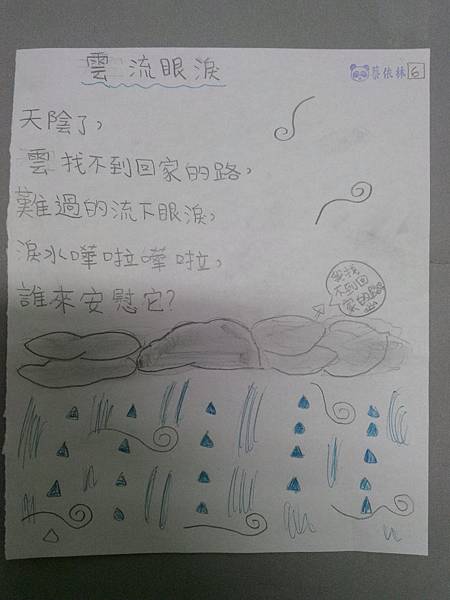 雲流眼淚
蔡依林 6
天陰了，
雲找不到回家的路，
難過的流下眼淚，
淚水嘩啦嘩啦，
誰來安慰它？
我找
不到回
家的路